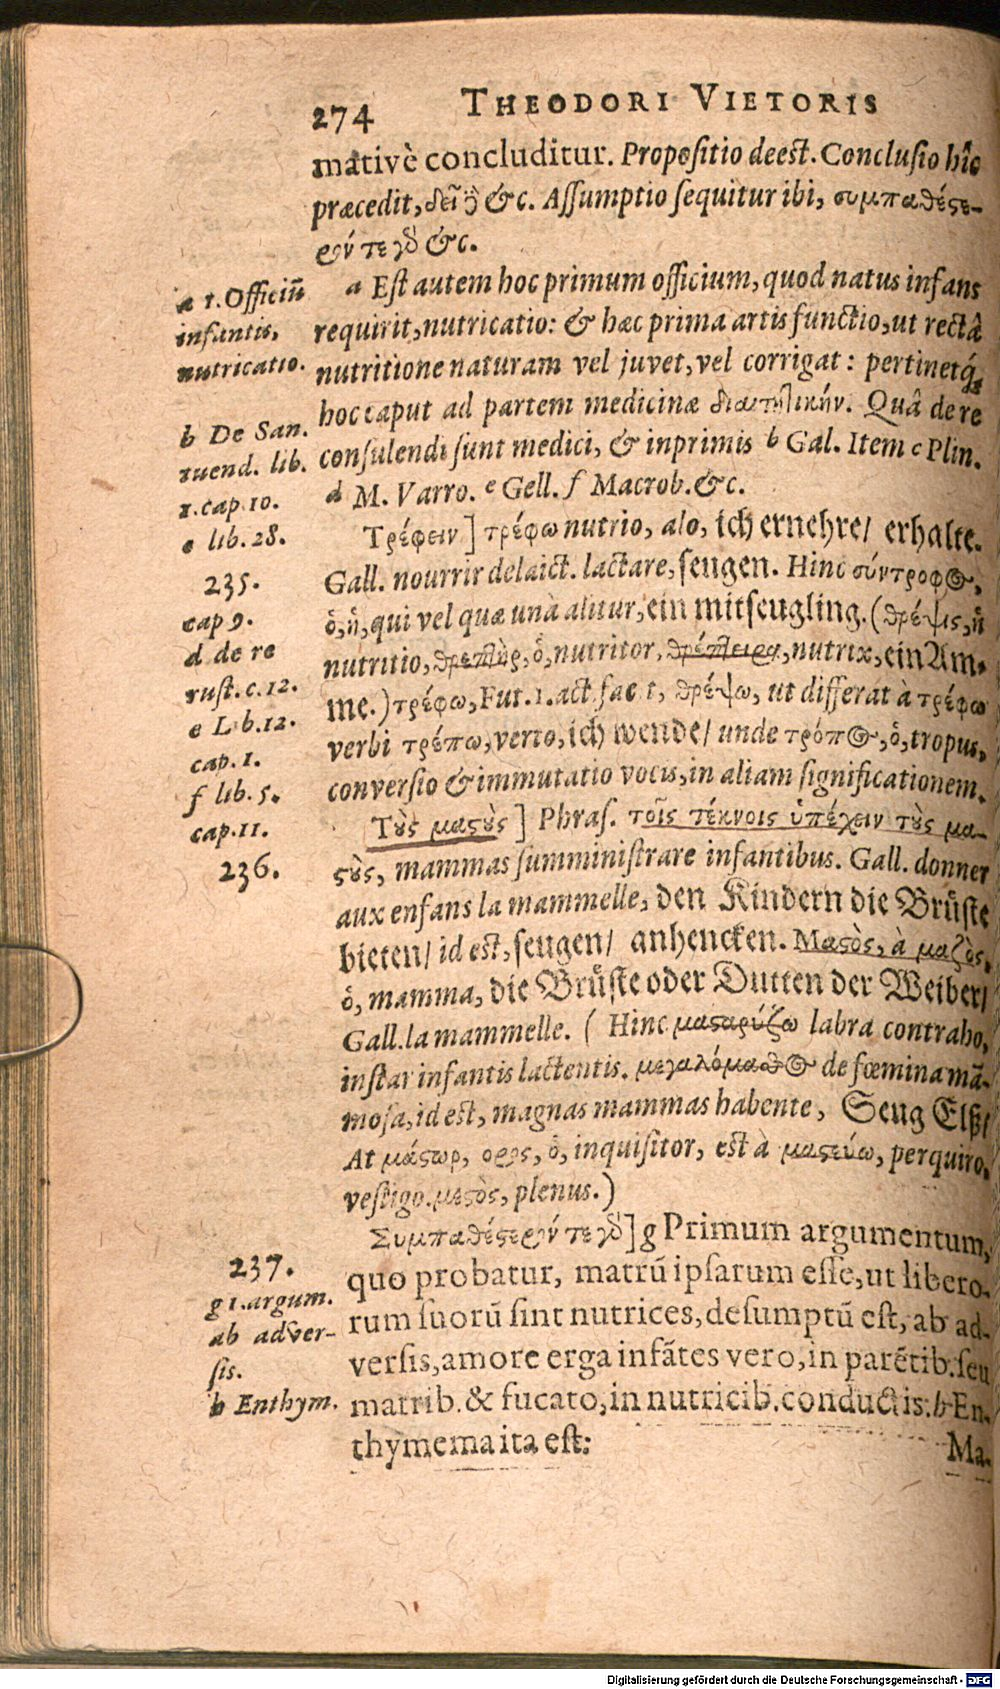 274 THEODORI VIETORIS
mativè concluditur. Propositio deest. Conclusio hîc
præcedit, δεῖ δὲ &c. Assumptio sequitur ibi, συμπαθέςε-
ρόν τε γὸ &c.
a Est autem hoc primum officium, quod natus infans
requirit, nutricatio: & hæc prima artis functio, ut rectâ
nutritione naturam vel juvet, vel corrigat: pertinetq́;
hoc caput ad partem medicinæ διαιτητικήν. Quâ de re
consulendi sunt medici, & inprimis b Gal. Item c Plin.
d M. Varro. e Gell. f Macrob. &c.
Τρέφειν] τρέφω nutrio, alo, ich ernehre/ erhalte.
Gall. nourrir delaict. lactare, seugen. Hinc σύντροφος,
ὁ, ἡ, qui vel quæ unà alitur, ein mitseugling. (θρέψις, ἡ
nutritio, θρεπτὴρ, ὁ, nutritor, θρέπτειρα, nutrix, ein Am-
me.) τρέφω, Fut. 1. act. facit, θρέψω, ut differat à τρέφω
verbi τρέπω, verto, ich wende/ unde τρόπος, ὁ, tropus,
conversio & immutatio vocis, in aliam significationem.
Τοὺς μαςοὺς] Phras. τοῖς τέκνοις ὑπέχειν τοὺς μα-
ςοὺς, mammas sumministrare infantibus. Gall. donner
aux enfans la mammelle, den Kindern die Brüste
bieten/ id est, seugen/ anhencken. Μαςὸς, à μαζὸς,
ὁ, mamma, die Brüste oder Dutten der Weiber/
Gall. la mammelle. ( Hinc μαςαρύζω labra contraho,
instar infantis lactentis. μεγαλόμασθος de fœmina mā-
mosa, id est, magnas mammas habente, Seug Elß/
At μάςωρ, ορος, ὁ, inquisitor, est à μαςεύω, perquiro,
vestigo. μεςὸς, plenus.)
Συμπαθέςερόν τε γὸ] g Primum argumentum,
quo probatur, matrū ipsarum esse, ut libero-
rum suorū sint nutrices, desumptū est, ab ad-
versis, amore erga infātes vero, in parētib. seu
matrib. & fucato, in nutricib. conductis: h En-
thymema ita est:
Ma-
a 1. Officiū
infantis,
nutricatio.
b De San.
tuend. lib.
1. cap. 10.
c lib. 28.
235.
cap 9.
d de re
rust. c. 12.
e Lib. 12.
cap. 1.
f lib. 5.
cap. 11.
236.
237.
g 1. argum.
ab adver-
sis.
h Enthym.
Digitalisierung gefördert durch die Deutsche Forschungsgemeinschaft - DFG